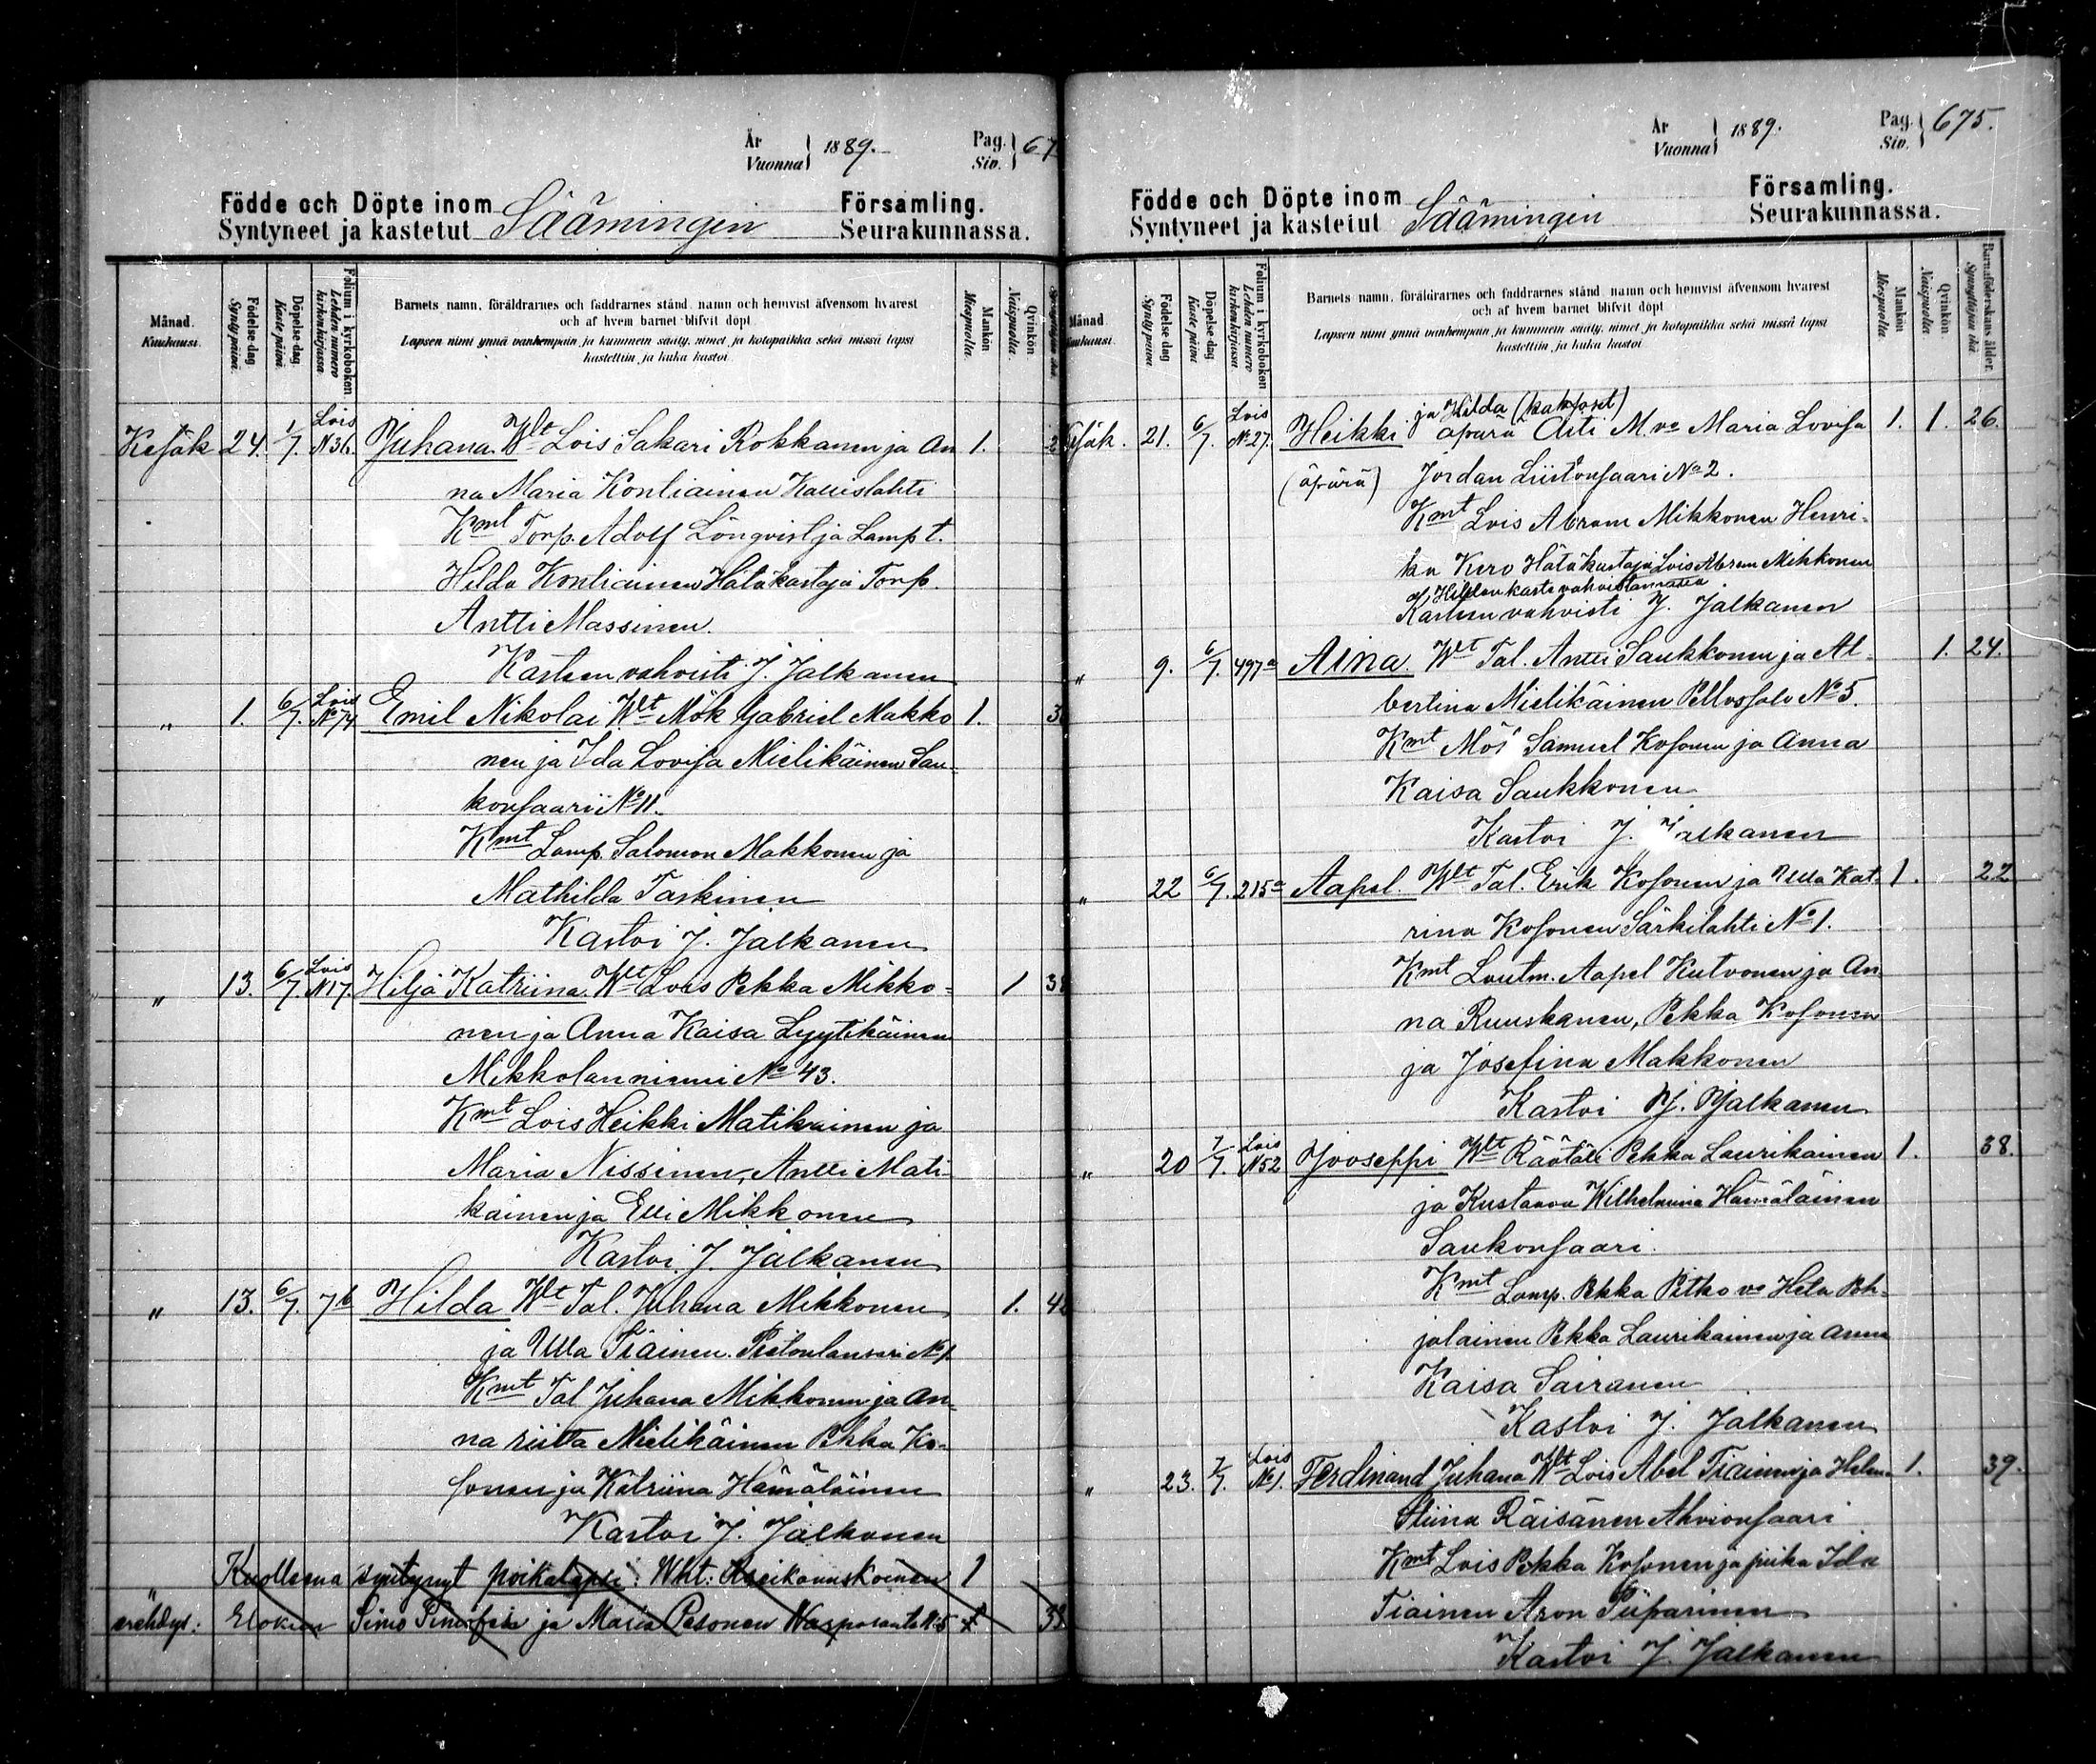 År
Vuonna } 1889.
Pag.
Siv. } 67
Födde och Döpte inom
Syntyneet ja kastetut Säämingin
Församling.
Seurakunnassa.
Månad.
Kuukausi.
Födelse-dag
Syntypäivä.
Döpelse-dag.
Kastepäivä
Folium i kyrkoboken
Lehden numero kirkonkirjassa
Barnets namn, föräldrarnes och faddrarnes stånd, namn och hemvist äfvensom hvarest
och af hvem barnet blifvit döpt.
Lapsen nimi ynnä vanhempain ja kummein sääty, nimet ja kotopaikka sekä missä lapsi
kastettiin ja kuka kastoi.
Mankön
Miespuolta.
Qvinkön.
Naispuolta.
Kesäk 24. 1/7. Lois N36. Juhana. Wlt Lois Sakari Rokkanen ja An 1.
na Maria Kontiainen Kallislahti
Kmt Torp. Adolf Lönqvist ja Lamp t.
Hilda Kontiainen Hätäkastaja Torp.
Antti Massinen.
Kasteen vahvisti J. Jalkanen
" 1. 6/7. Lois No 74 Emil Nikolai Wlt Mök Gabriel Makko 1. 3
nen ja Ida Lovisa Mielikäinen Sau-
konsaari No 11.
Kmt Lamp. Salomon Makkonen ja
Mathilda Taskinen
Kastoi J. Jalkanen
" 13. 6/7 Lois N17. Hilja Katriina. Wlt Lois Pekka Mikko- 1 38
nen ja Anna Kaisa Lyytikäinen
Mikkolanniemi No 43.
Kmt Lois Heikki Matikainen ja
Maria Nissinen, Antti Mati-
kainen ja Elli Mikkonen
Kastoi J. Jalkanen
" 13. 6/7. 7b Hilda Wlt Tal. Juhana Mikkonen 1. 4
ja Ulla Tiainen. No 1.
Kmt Tal Juhana Mikkonen ja An-
na riitta Mielikäinen Pekka Ko-
sonen ja Katriina Hämäläinen
Kastoi J. Jalkanen
" Kuolleena syntynyt poikalapsi. Wht: 1
Elokuu Simo ja Maria Pesonen N:5 38
År
Vuonna } 1889.
Pag.
Siv. } 675.
Födde och Döpte inom
Syntyneet ja kastetut Säämingin
Församling.
Seurakunnassa.
Månad.
Kuukausi.
Födelse-dag
Syntypäivä
Döpelse-dag.
Kastepäivä
Folium i kyrkoboken
Lehden numero kirkonkirjassa
Barnets namn, föräldrarnes och faddrarnes stånd, namn och hemvist äfvensom hvarest
och af hvem barnet blifvit döpt
Lapsen nimi ynnä vanhempain ja kummein sääty, nimet ja kotopaikka sekä missä lapsi
kastettiin ja kuka kastoi
Mankön
Miespuolta.
Qvinkön.
Naispuolta.
Barnaföderskans ålder.
Synnyttäjän ikä
ja Hilda (kaksoset)
Kesäk. 21. 6/7. Lois No 27. Heikki äpärä Äiti M. va Maria Lovisa 1. 1. 26.
(äpärä) Jordan Liistonsaari No 2.
Kmt Lois Abram Mikkonen Henri-
ka Kero Hätäkastaja Lois Abram Mikkonen
Kasteen vahvisti J. Jalkanen
" 9. 6/7. 497a Aina. Wlt Tal. Antti Saukkonen ja Al- 1. 24.
bertina Mielikäinen Pellossalo No 5.
Kmt Mös Samuel Kosonen ja Anna
Kaisa Saukkonen
Kastoi J. Jalkanen
" 22 6/7. 215a Aapel. Wlt Tal. Erik Kosonen ja Ulla Kat- 1. 22
rina Kosonen Särkilahti No 1.
Kmt Loutm. Aapel Kutvonen ja An-
na Ruuskanen, Pekka Kosonen
ja Josefina Makkonen
Kastoi J. Jalkanen
" 20 7/7. Lois N52 Jooseppi Wlt Räätäli Pekka Laurikainen 1. 38.
ja Kustaava Wilhelmiina Hämäläinen
Saukonsaari.
Kmt Lamp. Pekka Pitko va Hela Poh-
jolainen Pekka Laurikainen ja Anna
Kaisa Sairanen
Kastoi J. Jalkanen
" 23. 7/7. Lois No 1. Ferdinand Juhana Wlt Lois Abel Tiainen ja Helena 1. 39.
Stiina Räisänen Ahvionsaari
Kmt Lois Pekka Kosonen ja piika Ida
Tiainen Aron Piiparinen
Kastoi J. Jalkanen